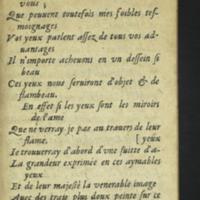 vous;
Que peuuent toutefois mes foibles tes-
moignages
Vos yeux parlent assez de tous vos ad-
uantages
Il n'importe acheuons en vn dessein si
beau
Ces yeux nous seruiront d'objet & de
flambeau.
En effet si les yeux sont les miroirs
de l'ame
Que ne verray je pas au trauers de leur
flame, [yeux
Ie trouuerray d'abord d'vne suitte d'a-
La grandeur exprimée en ces aymables
yeux
Et de leur majesté la venerable image
Auec des trais plus doux peinte sur ce